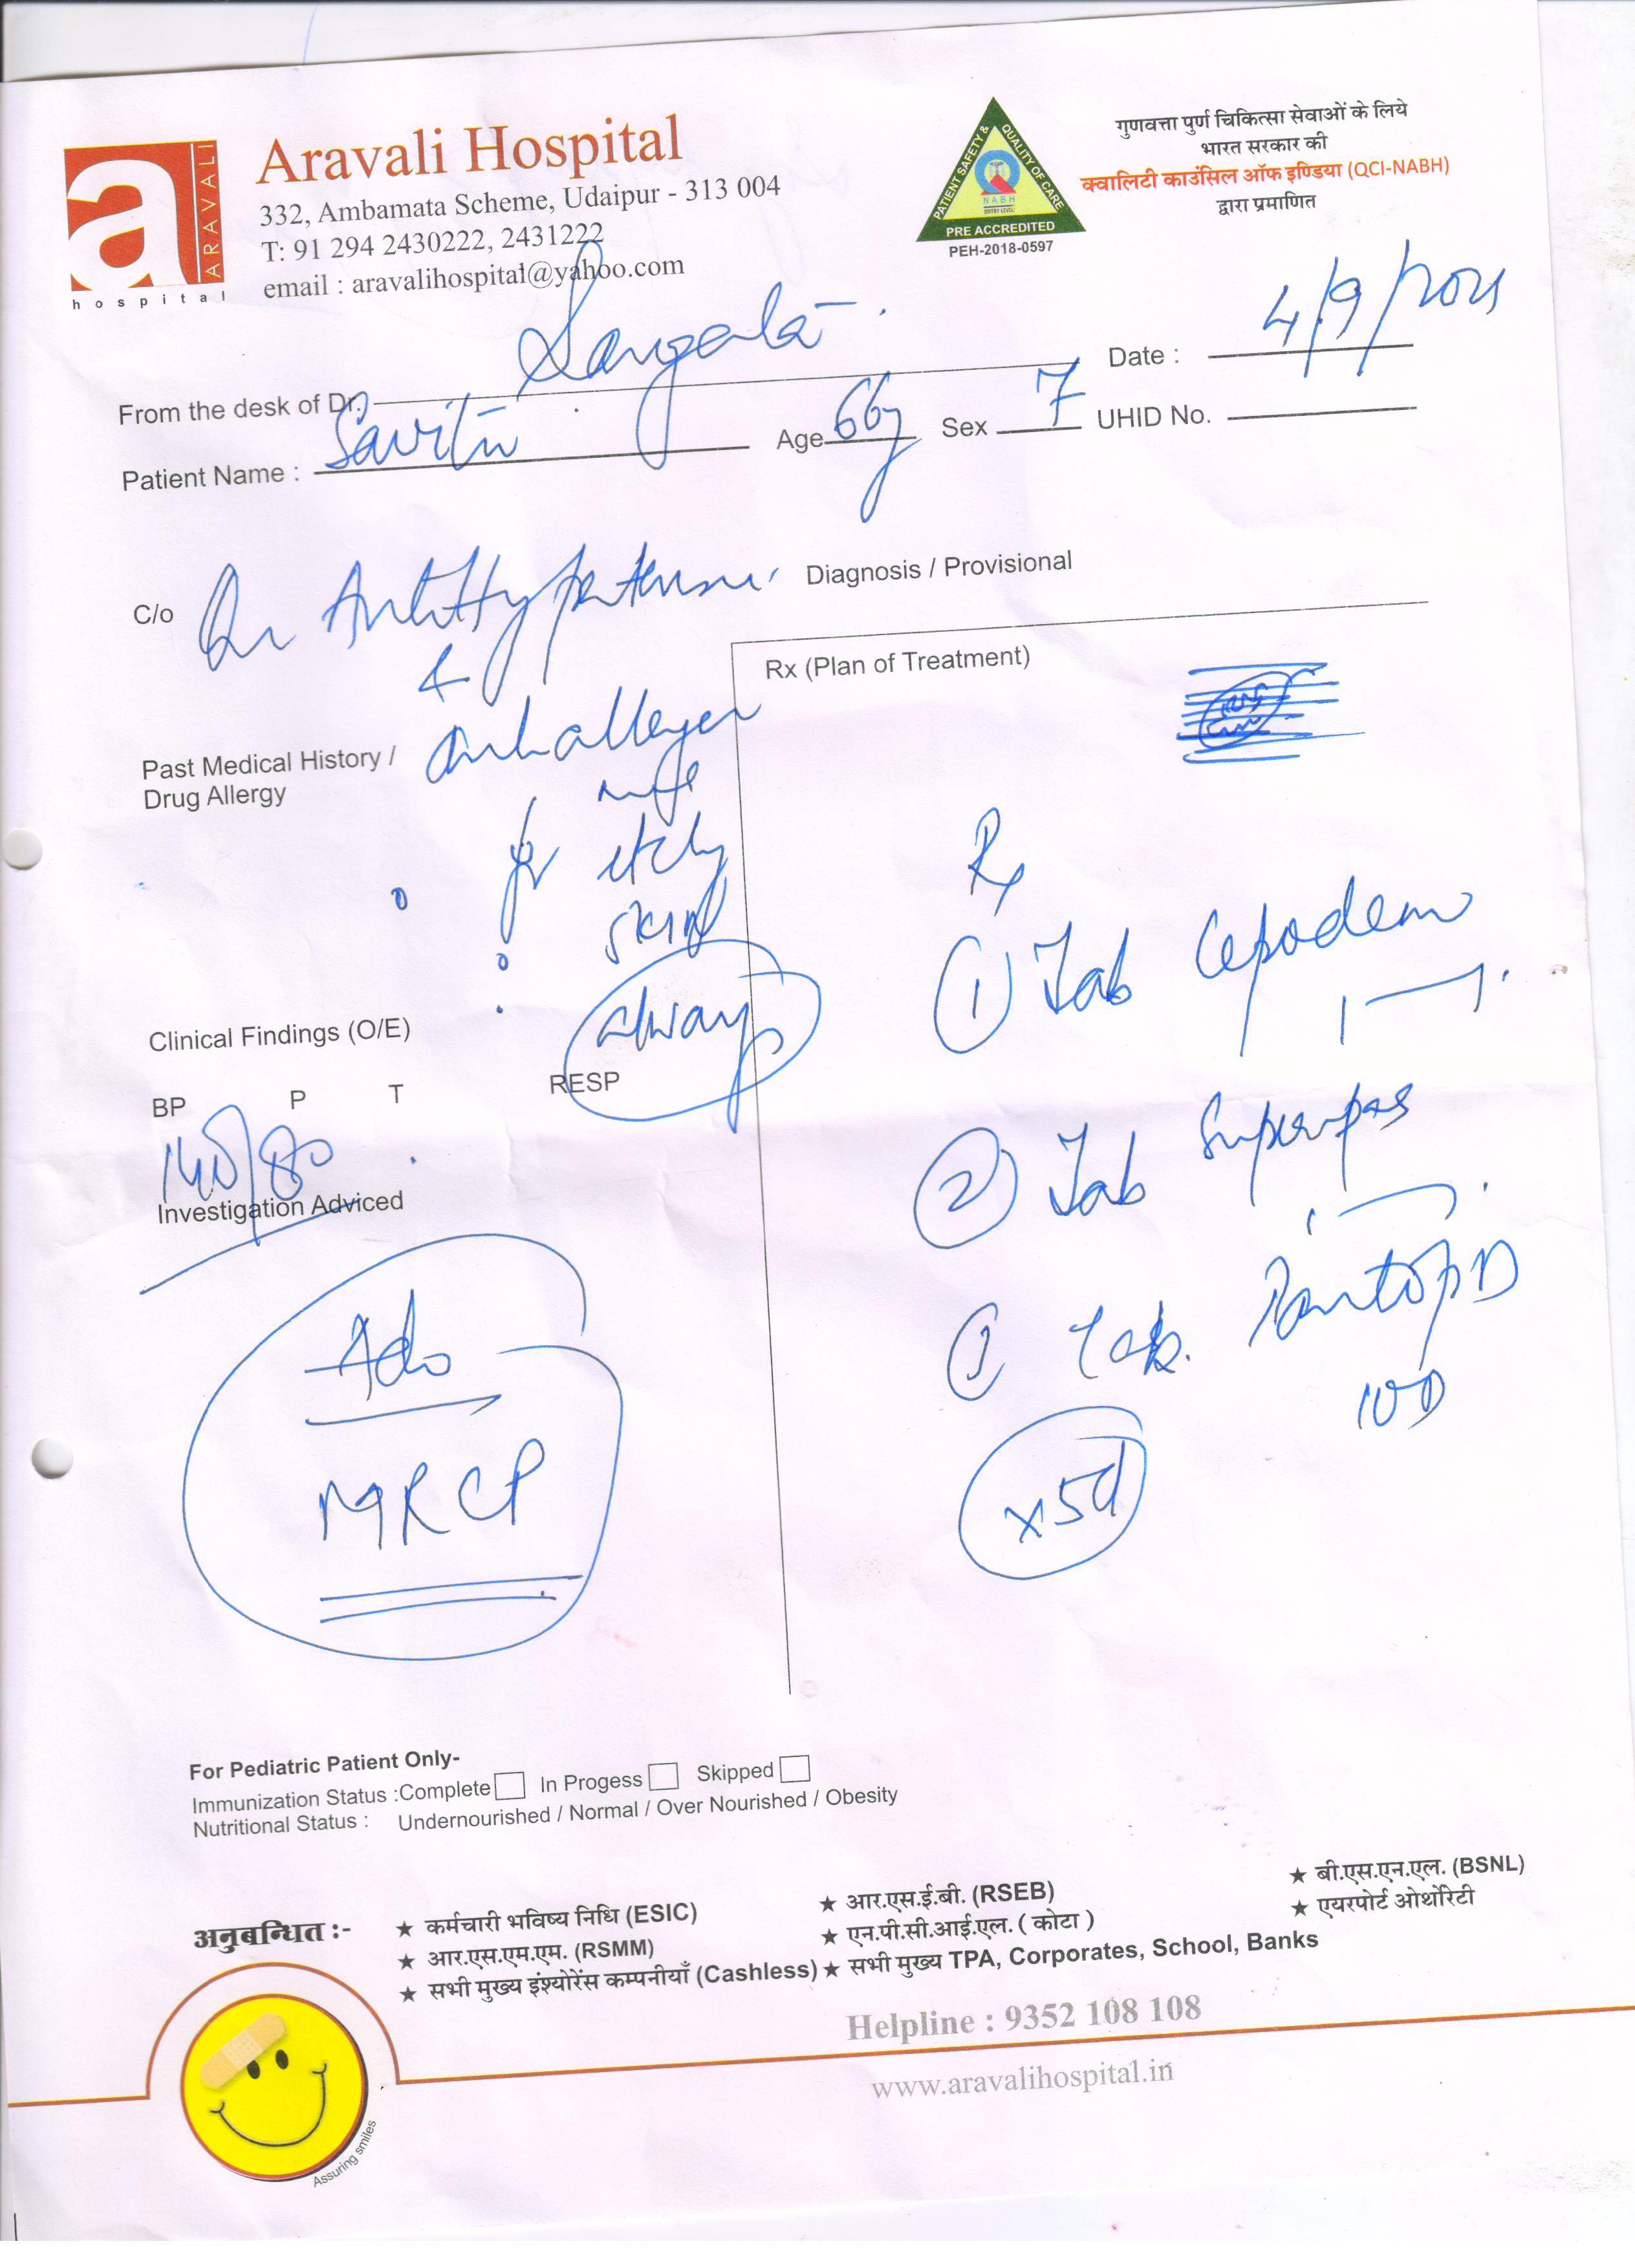 a
ARAVALI
hospital
Aravali Hospital
332, Ambamata Scheme, Udaipur - 313 004
T: 91 294 2430222, 2431222
email : aravalihospital@yahoo.com
PATIENT SAFETY & QUALITY OF CARE
NABH
ENTRY LEVEL
PRE ACCREDITED
PEH-2018-0597
गुणवत्ता पुर्ण चिकित्सा सेवाओं के लिये
भारत सरकार की
क्वालिटी काउंसिल ऑफ इण्डिया (QCI-NABH)
द्वारा प्रमाणित
From the desk of Dr. Sangeeta
Date : 4/9/2021
Patient Name : Savitri Age 66y Sex F UHID No.
C/o On AntiHypertensive
Diagnosis / Provisional
&
Rx (Plan of Treatment)
Past Medical History /
Drug Allergy
antiallergen
for itchy
skin
always
Clinical Findings (O/E)
BP P T RESP
140/80
Investigation Adviced
Adv
MRCP
Rx
① Tab Cepodem
1—1
② Tab Superspas
1—1
③ Tab. Pantop D
1OD
x5d
For Pediatric Patient Only-
Immunization Status :Complete In Progess Skipped
Nutritional Status : Undernourished / Normal / Over Nourished / Obesity
अनुबन्धित :-
★ कर्मचारी भविष्य निधि (ESIC) ★ आर.एस.ई.बी. (RSEB) ★ बी.एस.एन.एल. (BSNL)
★ आर.एस.एम.एम. (RSMM) ★ एन.पी.सी.आई.एल. ( कोटा ) ★ एयरपोर्ट ओथोरिटी
★ सभी मुख्य इंश्योरेंस कम्पनीयाँ (Cashless) ★ सभी मुख्य TPA, Corporates, School, Banks
Helpline : 9352 108 108
www.aravalihospital.in
Assuring smiles